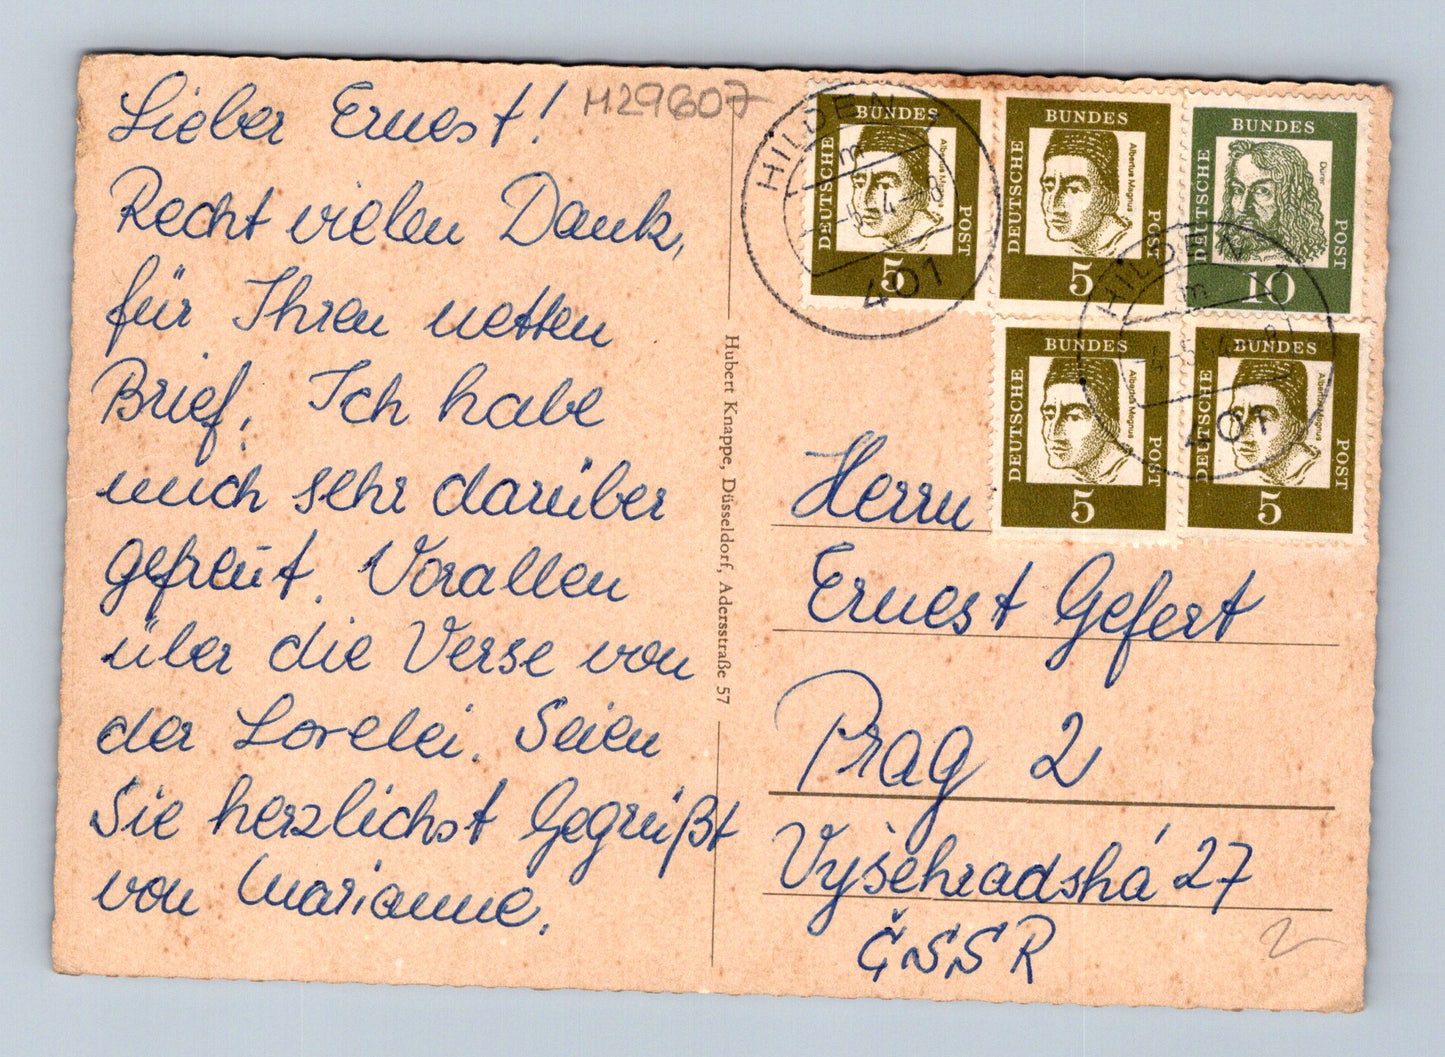 Lieber Ernest!
Recht vielen Dank,
für Ihren netten
Brief. Ich habe
mich sehr darüber
gefreut. Vorallen
über die Verse von
der Lorelei. Seien
Sie herzlichst Gegrüßt
von Marianne.
M29607
Hubert Knappe, Düsseldorf, Adersstraße 57
HILDEN
m
401
DEUTSCHE BUNDES POST
Albertus Magnus
5
DEUTSCHE BUNDES POST
Albertus Magnus
5
DEUTSCHE BUNDES POST
Dürer
10
DEUTSCHE BUNDES POST
Albertus Magnus
5
DEUTSCHE BUNDES POST
Albertus Magnus
5
HILDEN
m
401
Herrn
Ernest Gefert
Prag 2
Vyšehradská 27
ČSSR
2